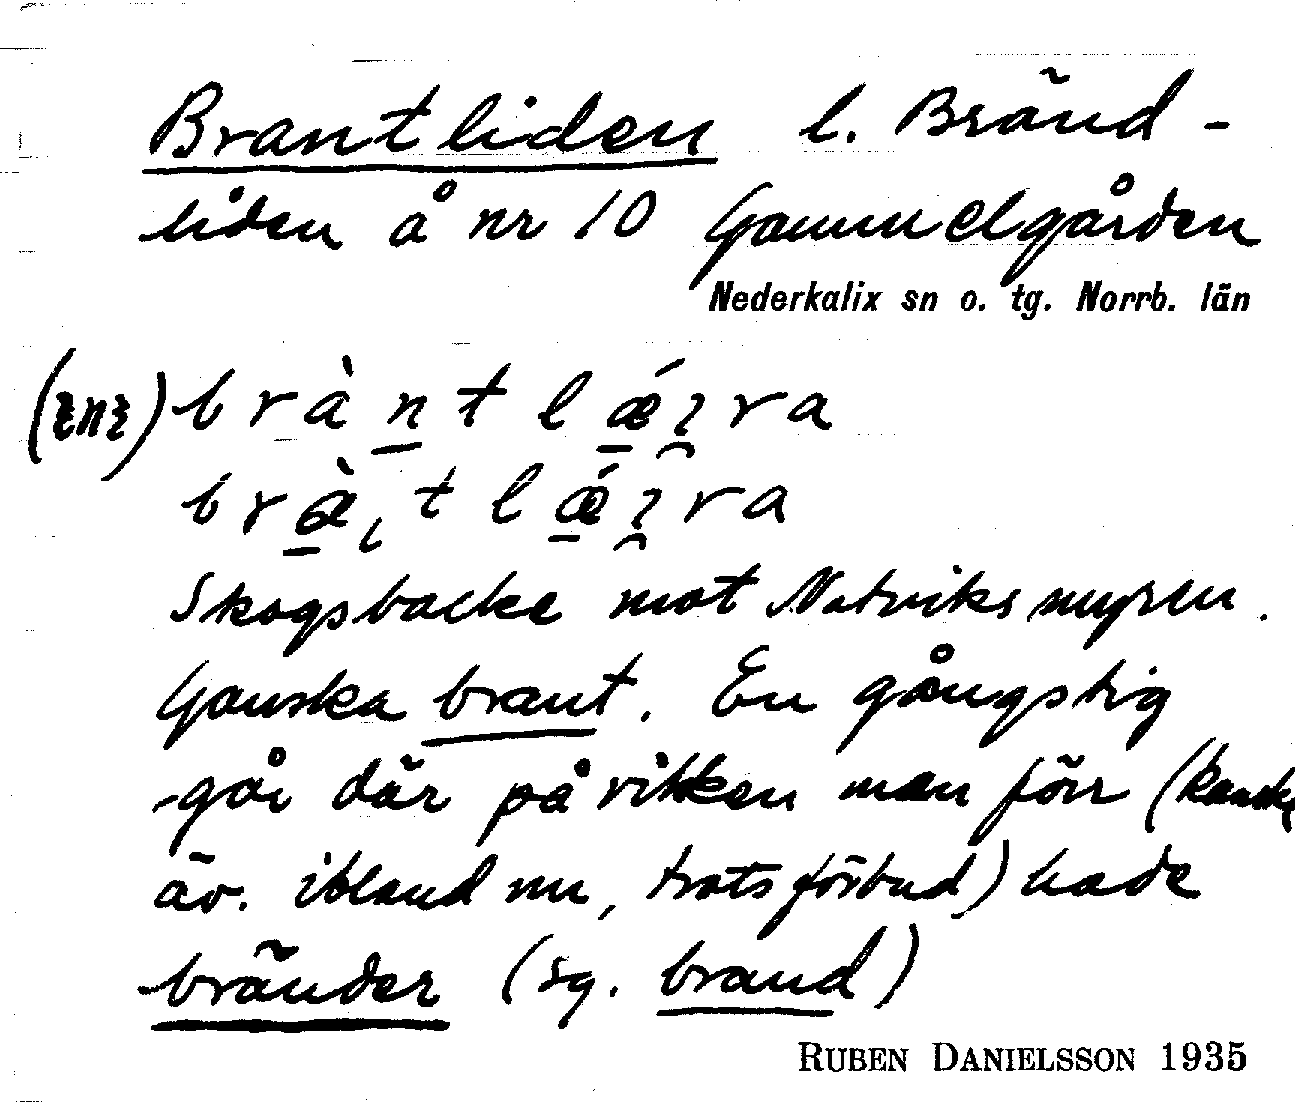 Brantliden l. Bränd-
liden å nr 10 Gammelgården
Nederkalix sn o. tg. Norrb. län
brànt lǽɿra
bræ̀ɩt lǽɿra
Skogsbacke mot Natviksmyren.
Ganska brant. En gångstig
går där på vilken man förr (kanske
äv. ibland nu, trots förbud) hade
bränder (sg. brand)
RUBEN DANIELSSON 1935